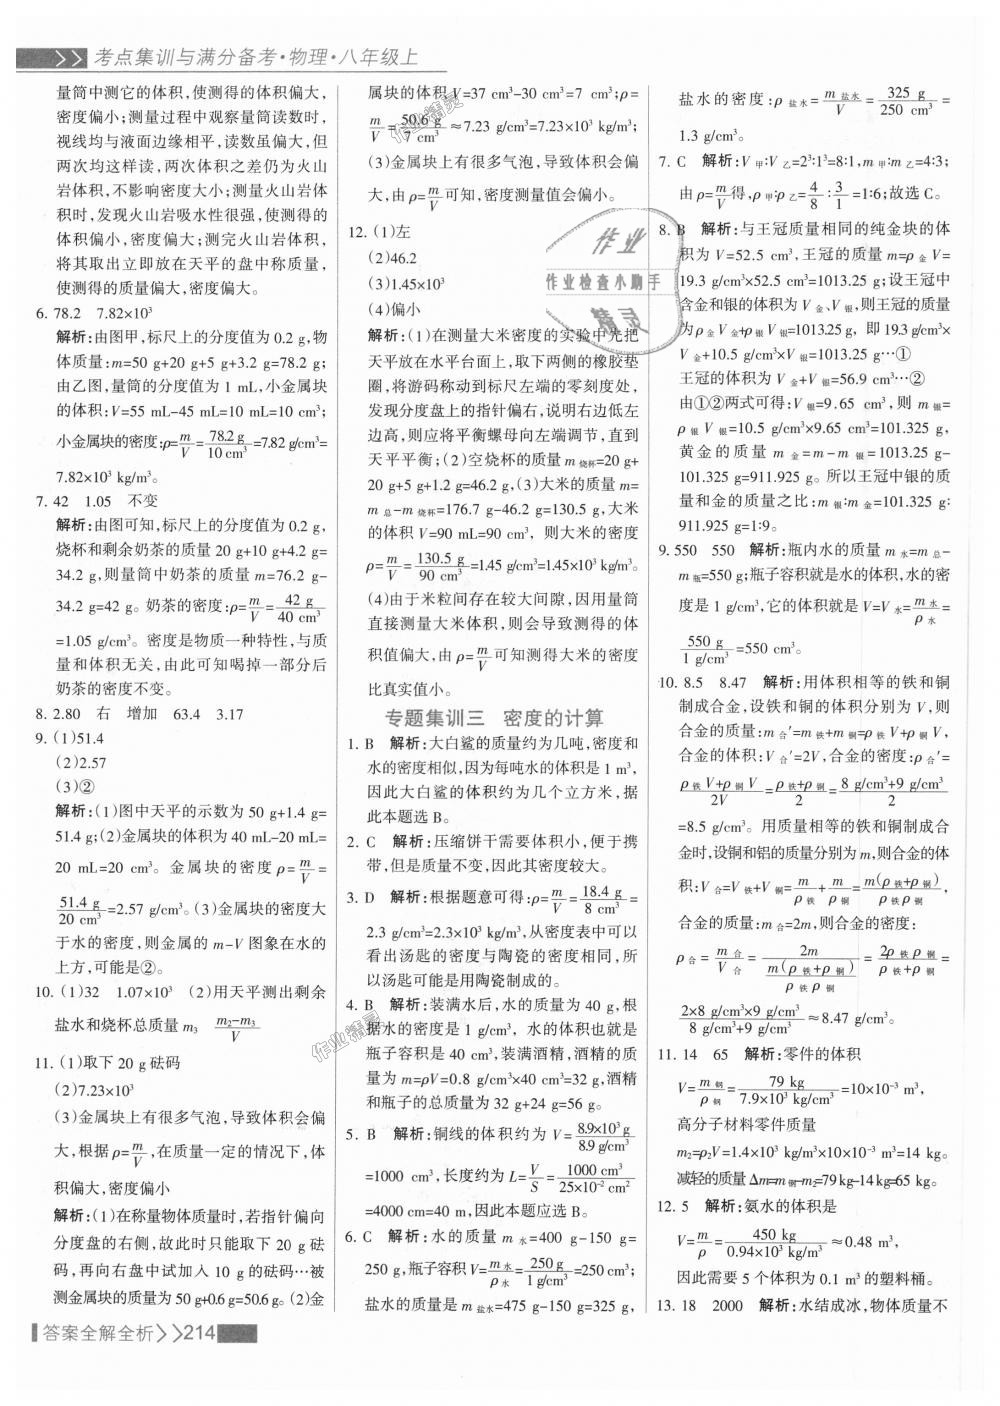 考点集训与满分备考·物理·八年级上
量筒中测它的体积,使测得的体积偏大,
密度偏小;测量过程中观察量筒读数时,
视线均与液面边缘相平,读数虽偏大,但
两次均这样读,两次体积之差仍为火山
岩体积,不影响密度大小;测量火山岩体
积时,发现火山岩吸水性很强,使测得的
体积偏小,密度偏大;测完火山岩体积,
将其取出立即放在天平的盘中称质量,
使测得的质量偏大,密度偏大。
6. 78.2 7.82×10³
解析:由图甲,标尺上的分度值为0.2 g,物
体质量:m=50 g+20 g+5 g+3.2 g=78.2 g;
由乙图,量筒的分度值为 1 mL,小金属块
的体积:V=55 mL-45 mL=10 mL=10 cm³;
小金属块的密度:ρ=m/V=78.2 g/10 cm³=7.82 g/cm³=
7.82×10³ kg/m³。
7. 42 1.05 不变
解析:由图可知,标尺上的分度值为0.2 g,
烧杯和剩余奶茶的质量 20 g+10 g+4.2 g=
34.2 g,则量筒中奶茶的质量 m=76.2 g-
34.2 g=42 g。奶茶的密度:ρ=m/V=42 g/40 cm³
=1.05 g/cm³。密度是物质一种特性,与质
量和体积无关,由此可知喝掉一部分后
奶茶的密度不变。
8. 2.80 右 增加 63.4 3.17
9. (1)51.4
(2)2.57
(3)②
解析:(1)图中天平的示数为 50 g+1.4 g=
51.4 g;(2)金属块的体积为 40 mL-20 mL=
20 mL=20 cm³。金属块的密度ρ=m/V=
51.4 g/20 cm³=2.57 g/cm³。(3)金属块的密度大
于水的密度,则金属的 m-V 图象在水的
上方,可能是②。
10. (1)32 1.07×10³ (2)用天平测出剩余
盐水和烧杯总质量 m₃ (m₂-m₃)/V
11. (1)取下 20 g 砝码
(2)7.23×10³
(3)金属块上有很多气泡,导致体积会偏
大,根据ρ=m/V,在质量一定的情况下,体
积偏大,密度偏小
解析:(1)在称量物体质量时,若指针偏向
分度盘的右侧,故此时只能取下 20 g 砝
码,再向右盘中试加入 10 g 的砝码…被
测金属块的质量为 50 g+0.6 g=50.6 g。(2)金
属块的体积 V=37 cm³-30 cm³=7 cm³;ρ=
m/V=50.6 g/7 cm³≈7.23 g/cm³=7.23×10³ kg/m³;
(3)金属块上有很多气泡,导致体积会偏
大,由ρ=m/V可知,密度测量值会偏小。
12. (1)左
(2)46.2
(3)1.45×10³
(4)偏小
解析:(1)在测量大米密度的实验中先把
天平放在水平台面上,取下两侧的橡胶垫
圈,将游码称动到标尺左端的零刻度处,
发现分度盘上的指针偏右,说明右边低左
边高,则应将平衡螺母向左端调节,直到
天平平衡;(2)空烧杯的质量 m烧杯=20 g+
20 g+5 g+1.2 g=46.2 g,(3)大米的质量m=
m总-m烧杯=176.7 g-46.2 g=130.5 g,大米
的体积 V=90 mL=90 cm³,则大米的密度
ρ=m/V=130.5 g/90 cm³=1.45 g/cm³=1.45×10³ kg/m³。
(4)由于米粒间存在较大间隙,因用量筒
直接测量大米体积,则会导致测得的体
积值偏大,由ρ=m/V可知测得大米的密度
比真实值小。
专题集训三 密度的计算
1. B 解析:大白鲨的质量约为几吨,密度和
水的密度相似,因为每吨水的体积是 1 m³,
因此大白鲨的体积约为几个立方米,据
此本题选 B。
2. C 解析:压缩饼干需要体积小,便于携
带,但是质量不变,因此其密度较大。
3. D 解析:根据题意可得:ρ=m/V=18.4 g/8 cm³=
2.3 g/cm³=2.3×10³ kg/m³,从密度表中可以
看出汤匙的密度与陶瓷的密度相同,所
以汤匙可能是用陶瓷制成的。
4. B 解析:装满水后,水的质量为 40 g,根
据水的密度是 1 g/cm³,水的体积也就是
瓶子容积是 40 cm³,装满酒精,酒精的质
量为 m=ρV=0.8 g/cm³×40 cm³=32 g,酒精
和瓶子的总质量为 32 g+24 g=56 g。
5. B 解析:铜线的体积约为 V=8.9×10³g/8.9 g/cm³
=1000 cm³,长度约为 L=V/S=1000 cm³/25×10⁻² cm²
=4000 cm=40 m,因此本题应选 B。
6. C 解析:水的质量 m水=400 g-150 g=
250 g,瓶子容积V=m水/ρ水=250 g/1 g/cm³=250 cm³;
盐水的质量是 m盐水=475 g-150 g=325 g,
盐水的密度:ρ盐水=m盐水/V=325 g/250 cm³=
1.3 g/cm³。
7. C 解析:V甲:V乙=2³:1³=8:1,m甲:m乙=4:3;
由ρ=m/V得,ρ甲:ρ乙=4/8:3/1=1:6;故选 C。
8. B 解析:与王冠质量相同的纯金块的体
积为 V=52.5 cm³,王冠的质量 m=ρ金V=
19.3 g/cm³×52.5 cm³=1013.25 g;设王冠中
含金和银的体积为 V金、V银,则王冠的质量
为ρ金V金+ρ银V银=1013.25 g,即 19.3 g/cm³×
V金+10.5 g/cm³×V银=1013.25 g…①
王冠的体积为 V金+V银=56.9 cm³…②
由①②两式可得:V银=9.65 cm³,则 m银=
ρ银V银=10.5 g/cm³×9.65 cm³=101.325 g,
黄金的质量 m金=m-m银=1013.25 g-
101.325 g=911.925 g。所以王冠中银的质
量和金的质量之比:m银:m金=101.325 g:
911.925 g=1:9。
9. 550 550 解析:瓶内水的质量 m水=m总-
m瓶=550 g;瓶子容积就是水的体积,水的密
度是 1 g/cm³,它的体积就是 V=V水=m水/ρ水=
550 g/1 g/cm³=550 cm³。
10. 8.5 8.47 解析:用体积相等的铁和铜
制成合金,设铁和铜的体积分别为 V,则
合金的质量:m合′=m铁+m铜=ρ铁V+ρ铜V,
合金的体积:V合′=2V,合金的密度:ρ合′=
(ρ铁V+ρ铜V)/2V=(ρ铁+ρ铜)/2=(8 g/cm³+9 g/cm³)/2
=8.5 g/cm³。用质量相等的铁和铜制成合
金时,设铜和铝的质量分别为m,则合金的体
积:V合=V铁+V铜=m/ρ铁+m/ρ铜=m(ρ铁+ρ铜)/ρ铁ρ铜,
合金的质量:m合=2m,则合金的密度:
ρ合=m合/V合=2m/(m(ρ铁+ρ铜)/ρ铁ρ铜)=2ρ铁ρ铜/(ρ铁+ρ铜)=
(2×8 g/cm³×9 g/cm³)/(8 g/cm³+9 g/cm³)≈8.47 g/cm³。
11. 14 65 解析:零件的体积
V=m钢/ρ钢=79 kg/7.9×10³ kg/cm³=10×10⁻³ m³,
高分子材料零件质量
m₂=ρ₂V=1.4×10³ kg/m³×10×10⁻³ m³=14 kg。
减轻的质量 Δm=m钢-m₂=79 kg-14 kg=65 kg。
12. 5 解析:氨水的体积是
V=m/ρ=450 kg/0.94×10³ kg/m³≈0.48 m³,
因此需要 5 个体积为 0.1 m³的塑料桶。
13. 18 2000 解析:水结成冰,物体质量不
答案全解全析>>214
作业
作业检查小助手
精灵
作业精灵
作业精灵